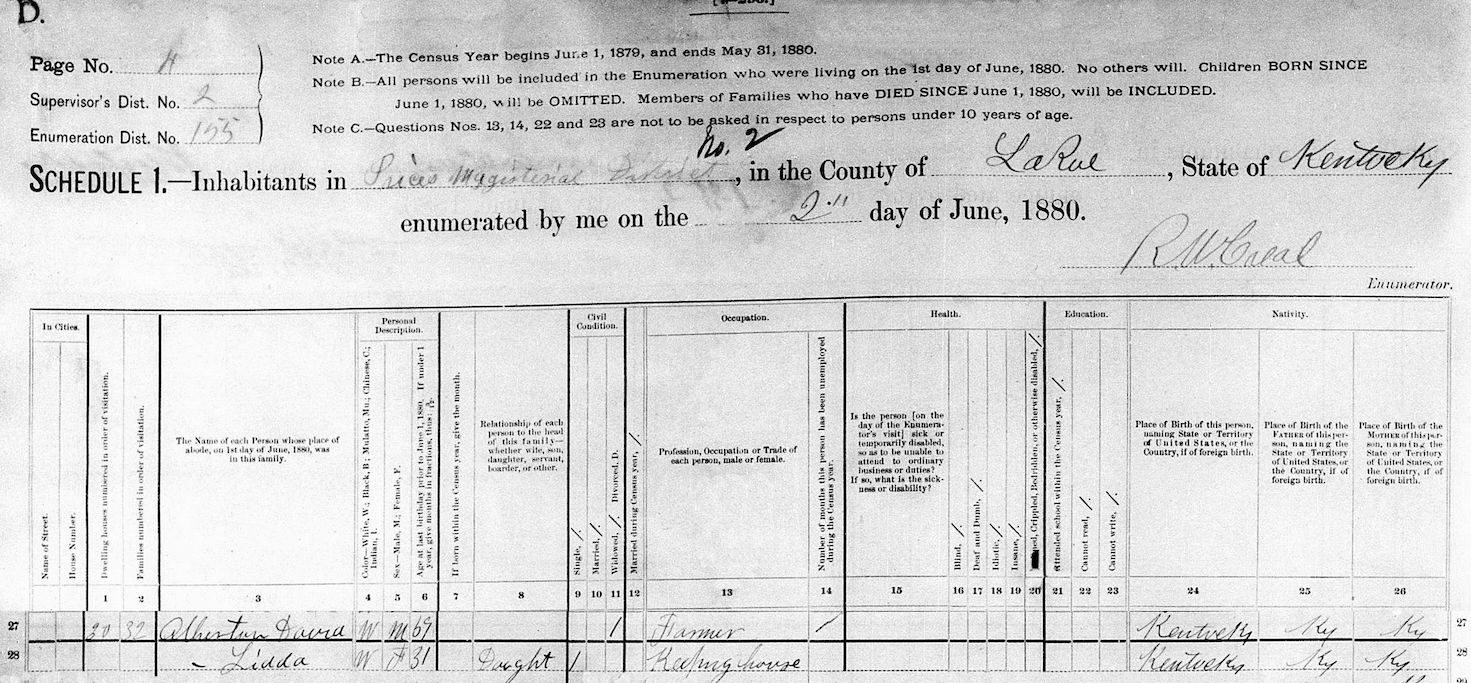 D.
Page No. 4
Supervisor's Dist. No. 2
Enumeration Dist. No. 155
Note A.—The Census Year begins June 1, 1879, and ends May 31, 1880.
Note B.—All persons will be included in the Enumeration who were living on the 1st day of June, 1880. No others will. Children BORN SINCE
June 1, 1880, will be OMITTED. Members of Families who have DIED SINCE June 1, 1880, will be INCLUDED.
Note C.—Questions Nos. 13, 14, 22 and 23 are not to be asked in respect to persons under 10 years of age.
No. 2
SCHEDULE 1.—Inhabitants in Prices Magisterial District, in the County of LaRue, State of Kentucky
enumerated by me on the 2" day of June, 1880.
R. W. Creal
Enumerator.
In Cities.
Name of Street.
House Number.
Dwelling houses numbered in order of visitation.
Families numbered in order of visitation.
The Name of each Person whose place of
abode, on 1st day of June, 1880, was
in this family.
Personal
Description.
Color—White, W.; Black, B.; Mulatto, Mu.; Chinese, C.;
Indian, I.
Sex—Male, M.; Female, F.
Age at last birthday prior to June 1, 1880. If under 1
year, give months in fractions, thus: 3/12.
If born within the Census year, give the month.
Relationship of each
person to the head
of this family—
whether wife, son,
daughter, servant,
boarder, or other.
Civil
Condition.
Single, /.
Married, /.
Widowed, /. Divorced, D.
Married during Census year, /.
Occupation.
Profession, Occupation or Trade of
each person, male or female.
Number of months this person has been unemployed
during the Census year.
Health.
Is the person [on the
day of the Enumera-
tor's visit] sick or
temporarily disabled,
so as to be unable to
attend to ordinary
business or duties?
If so, what is the sick-
ness or disability?
Blind, /.
Deaf and Dumb, /.
Idiotic, /.
Insane, /.
Crippled, Bedridden, or otherwise disabled, /.
Education.
Attended school within the Census year, /.
Cannot read, /.
Cannot write, /.
Nativity.
Place of Birth of this person,
naming State or Territory
of United States, or the
Country, if of foreign birth.
Place of Birth of the
FATHER of this per-
son, naming the
State or Territory
of United States, or
the Country, if of
foreign birth.
Place of Birth of the
MOTHER of this per-
son, naming the
State or Territory
of United States, or
the Country, if of
foreign birth.
1 2 3 4 5 6 7 8 9 10 11 12 13 14 15 16 17 18 19 20 21 22 23 24 25 26
27 30 32 Atherton David W M 69 / Farmer / Kentucky Ky Ky 27
28 – Lidda W F 31 Daught / Keeping house Kentucky Ky Ky 28
29